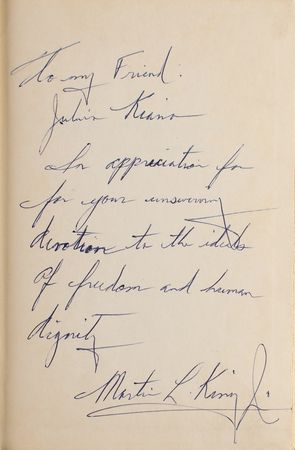 To my Friend:
Julian Keana
In appreciation for
for your unswerving
devotion to the ideals
of freedom and human
dignity
Martin L. King Jr.